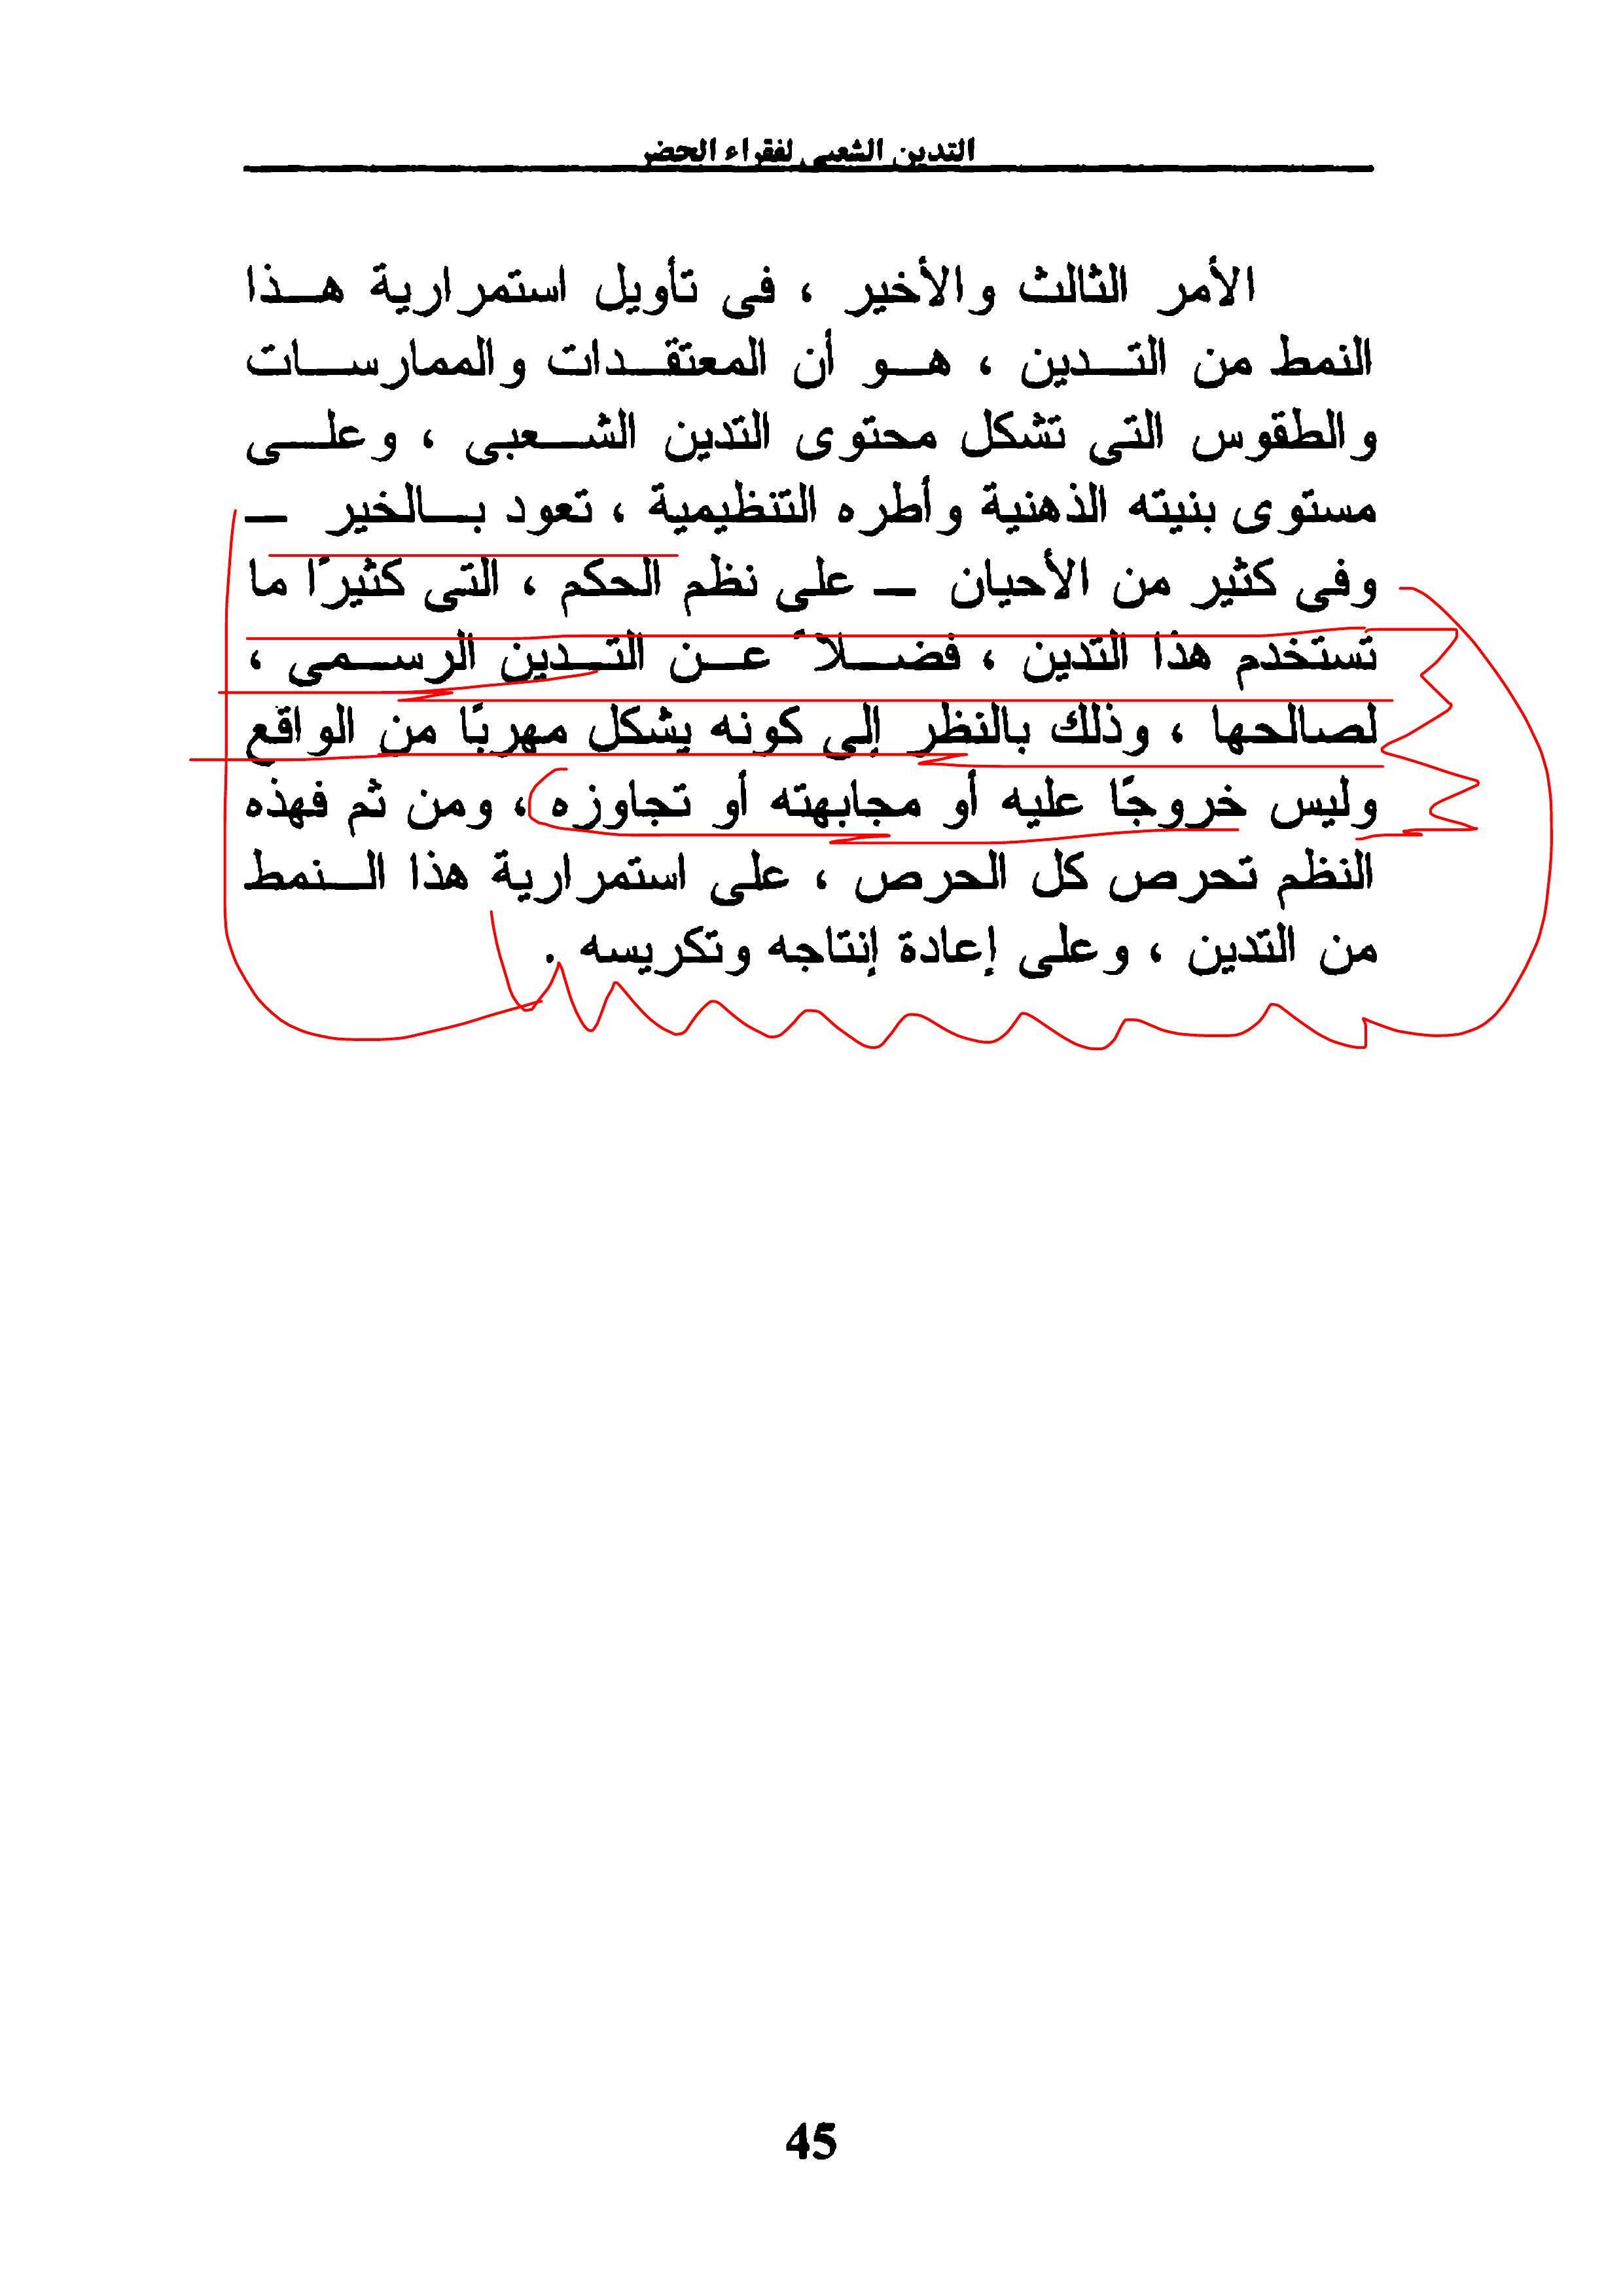 التدين الشعبى لفقراء الحضر
الأمر الثالث والأخير ، فى تأويل استمرارية هـذا
النمط من التـدين ، هـو أن المعتقـدات والممارسـات
والطقوس التى تشكل محتوى التدين الشـعبى ، وعلـى
مستوى بنيته الذهنية وأطره التنظيمية ، تعود بـالخير ــ
وفى كثير من الأحيان ــ على نظم الحكم ، التى كثيرًا ما
تستخدم هذا التدين ، فضـلاً عـن التـدين الرسـمى ،
لصالحها ، وذلك بالنظر إلى كونه يشكل مهربًا من الواقع
وليس خروجًا عليه أو مجابهته أو تجاوزه ، ومن ثم فهذه
النظم تحرص كل الحرص ، على استمرارية هذا الـنمط
من التدين ، وعلى إعادة إنتاجه وتكريسه .
45